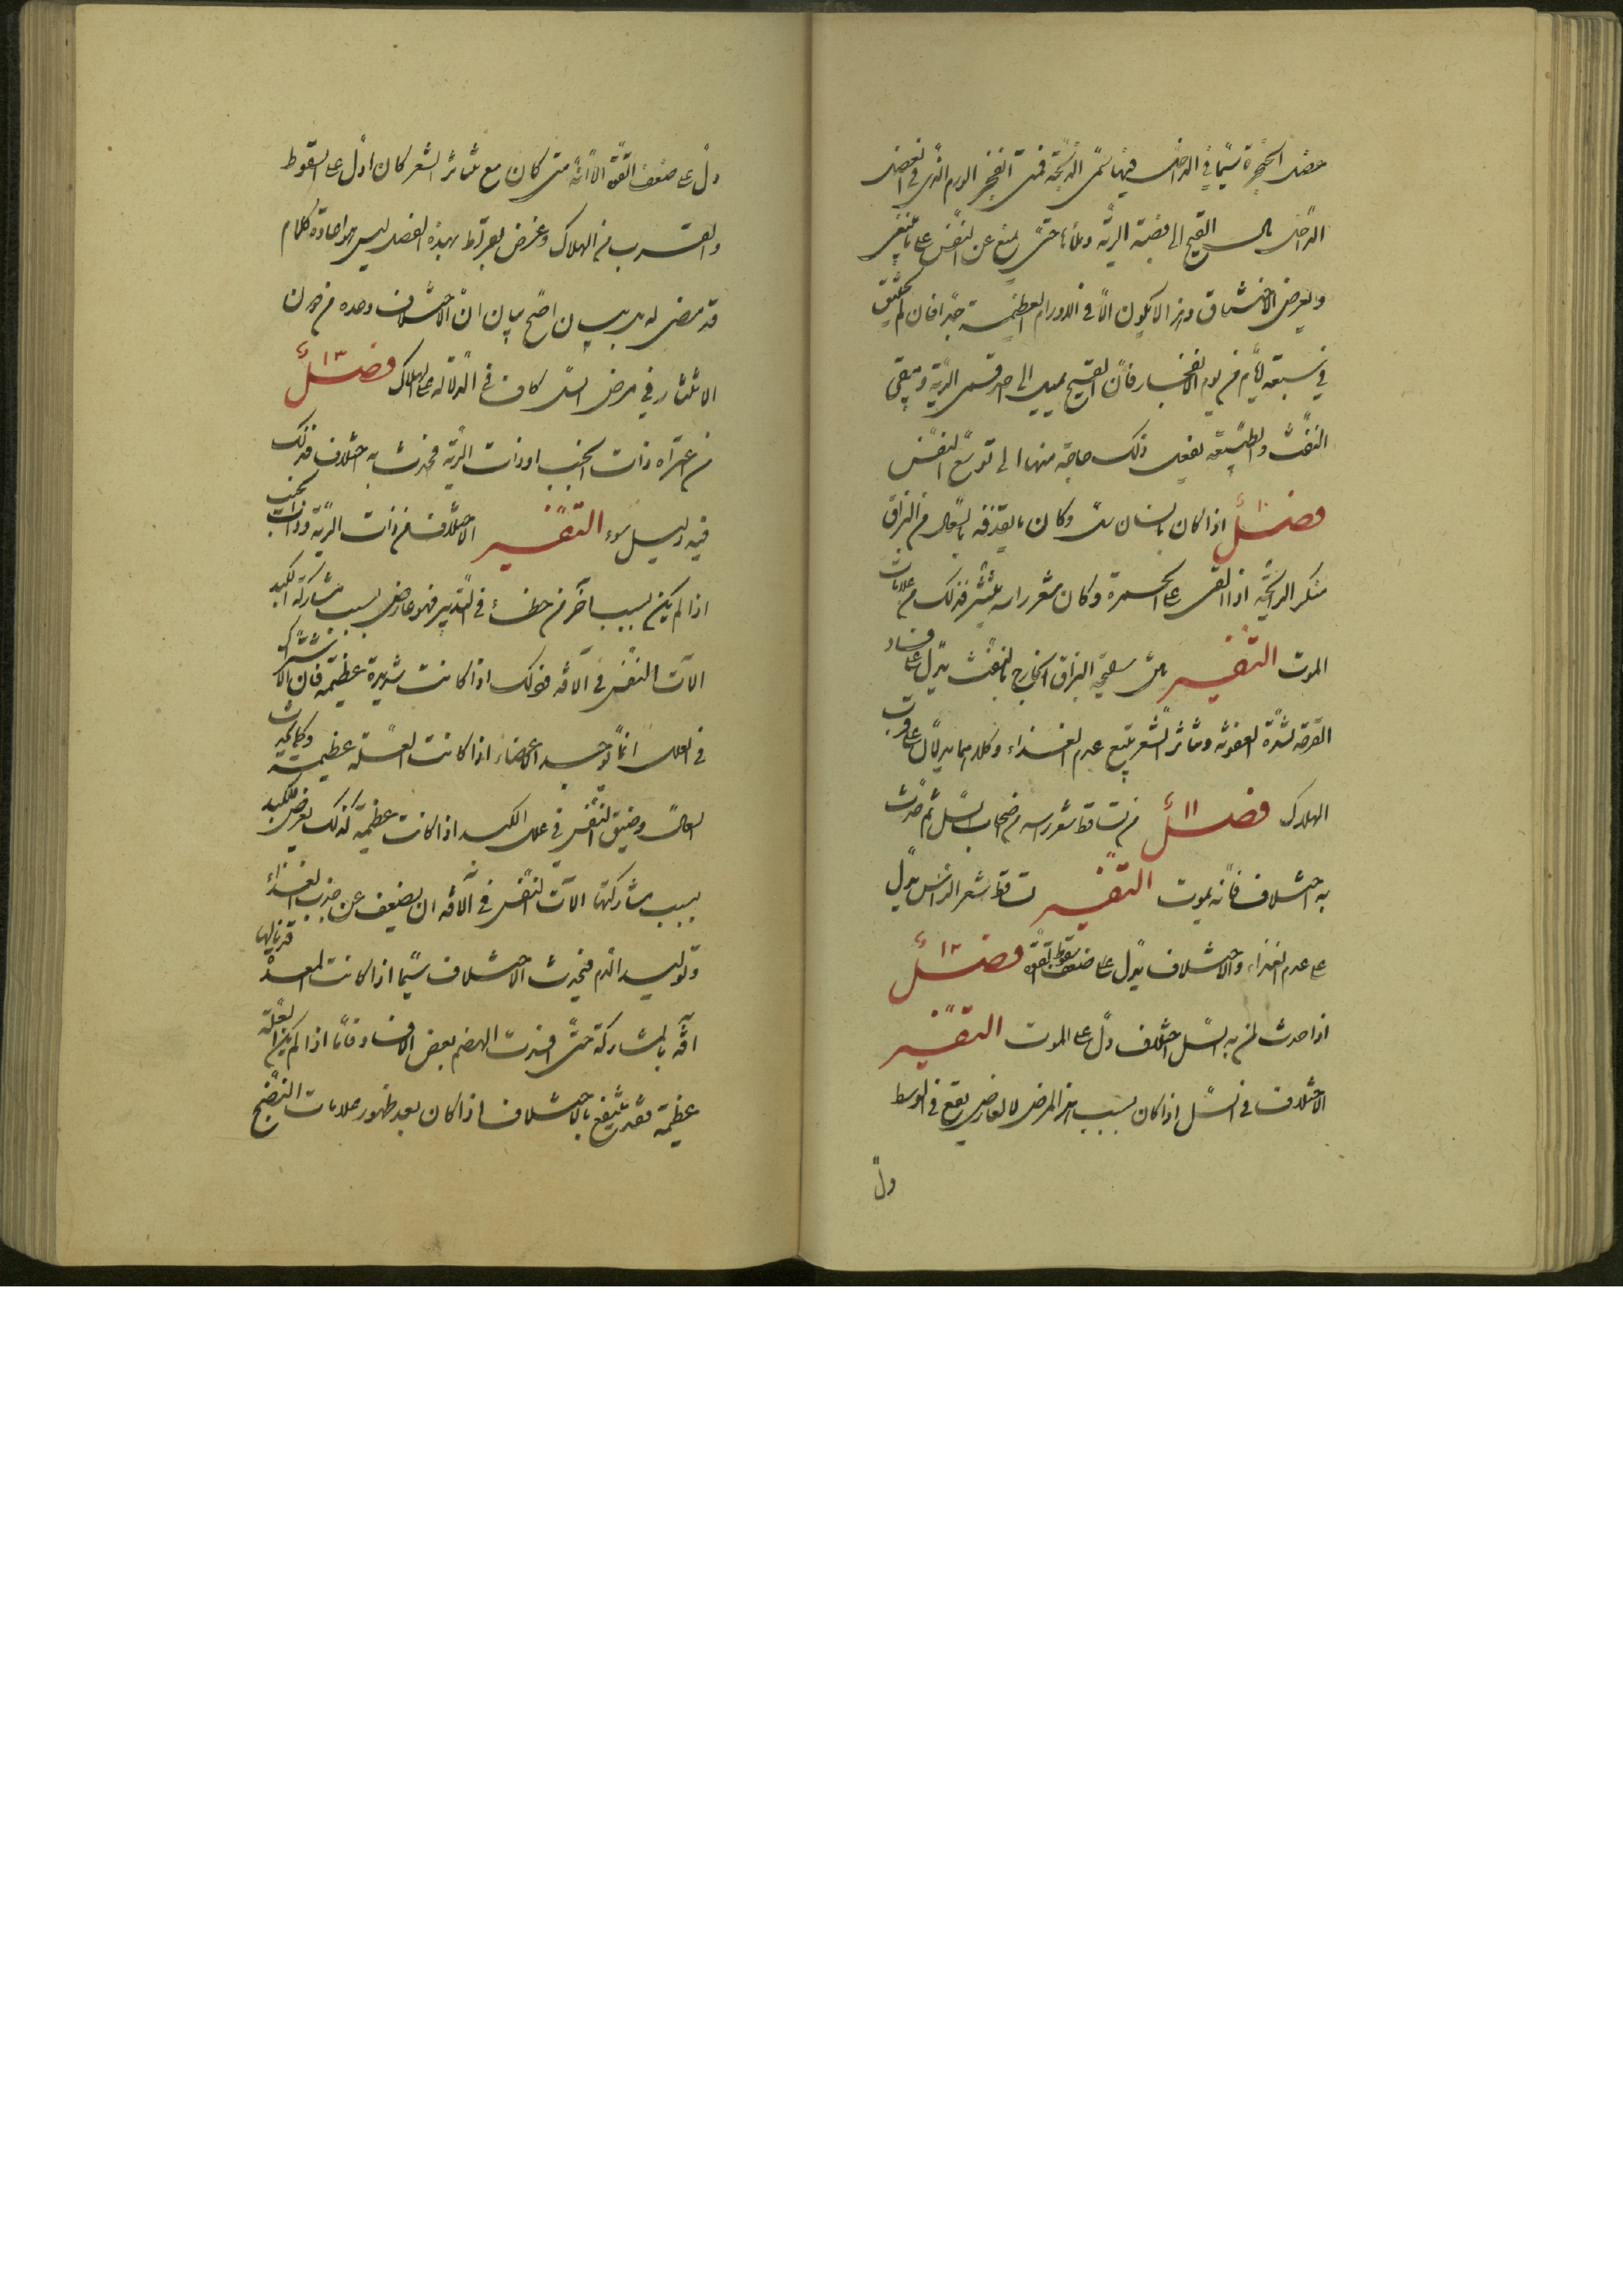 عضل الحنجرة سيّما في الداخل فيها تسمّى الذبحة فمتى انفجر الورم الذي في العضل
الداخل سال القيح الى قصبة الرية وملأها حتى يمنع عن التنفس على ما ينبغي
ويعرض الاختناق وهذا لا يكون الا في الاورام العظيمة جدا فان لم يختنق
في سبعة ايام من يوم الانفجار فان القيح يميل الى احد قسمي الرية ويبقى
النفث والطبيعة تفعل ذلك حاجة منها الى توسع التنفس
فصل ١٠ اذا كان بانسان سل وكان ما يقذفه بالسعال من البزاق
منكر الرايحة اذا القي على الجمرة وكان شعر راسه ينتثر فذلك من علامات
الموت التفسير نتن رايحة البزاق الخارج بالنفث يدل على فساد
القرحة لشدة العفونة وتناثر الشعر يتبع عدم الغذاء وكلاهما يدلان على قرب
الهلاك فصل ١١ من تساقط شعر راسه من اصحاب السل ثم حدث
به اختلاف فانه يموت التفسير تساقط شعر الراس يدل
على عدم الغذاء والاختلاف يدل على ضعف القوة فصل ١٢
اذا حدث لمن به السل اختلاف دل على الموت التفسير
الاختلاف في السل اذا كان بسبب هذا المرض لا لعارض يقع في الوسط
دل
دل على ضعف القوة الا انه متى كان مع تناثر الشعر كان ادل على السقوط
والقرب من الهلاك وغرض بقراط بهذه الفصل ليس هو اعادة كلام
قد مضى له بل بيان اصح بيان ان الاختلاف وحده من دون
الانتثار في مرض السل كاف في الدلالة على الهلاك فصل ١٣
من اعتراه ذات الجنب او ذات الرية فحدث به اختلاف فذلك
فيه دليل سوء التفسير الاختلاف في ذات الرية وذات الجنب
اذا لم يكن بسبب آخر من خطاء في التدبير فهو عارض بسبب مشاركة الكبد
آلات التنفس في الآفة وذلك اذا كانت شديدة عظيمة فان الاشتراك
في العلل انما يوجد الاعضاء اذا كانت العلة عظيمة وكما يحدث
السعال وضيق النفس في علل الكبد اذا كانت عظيمة كذلك يعرض للكبد
بسبب مشاركتها آلات التنفس في الآفة ان يضعف عن جذب الغذاء
وتوليد الدم فيحدث الاختلاف سيما اذا كانت المعدة قد نالها
آفة بالمشاركة حتى افسدت الهضم بعض الافساد فاما اذا لم يكن العلة
عظيمة فقد ينتفع بالاختلاف اذا كان بعد ظهور علامات النضج